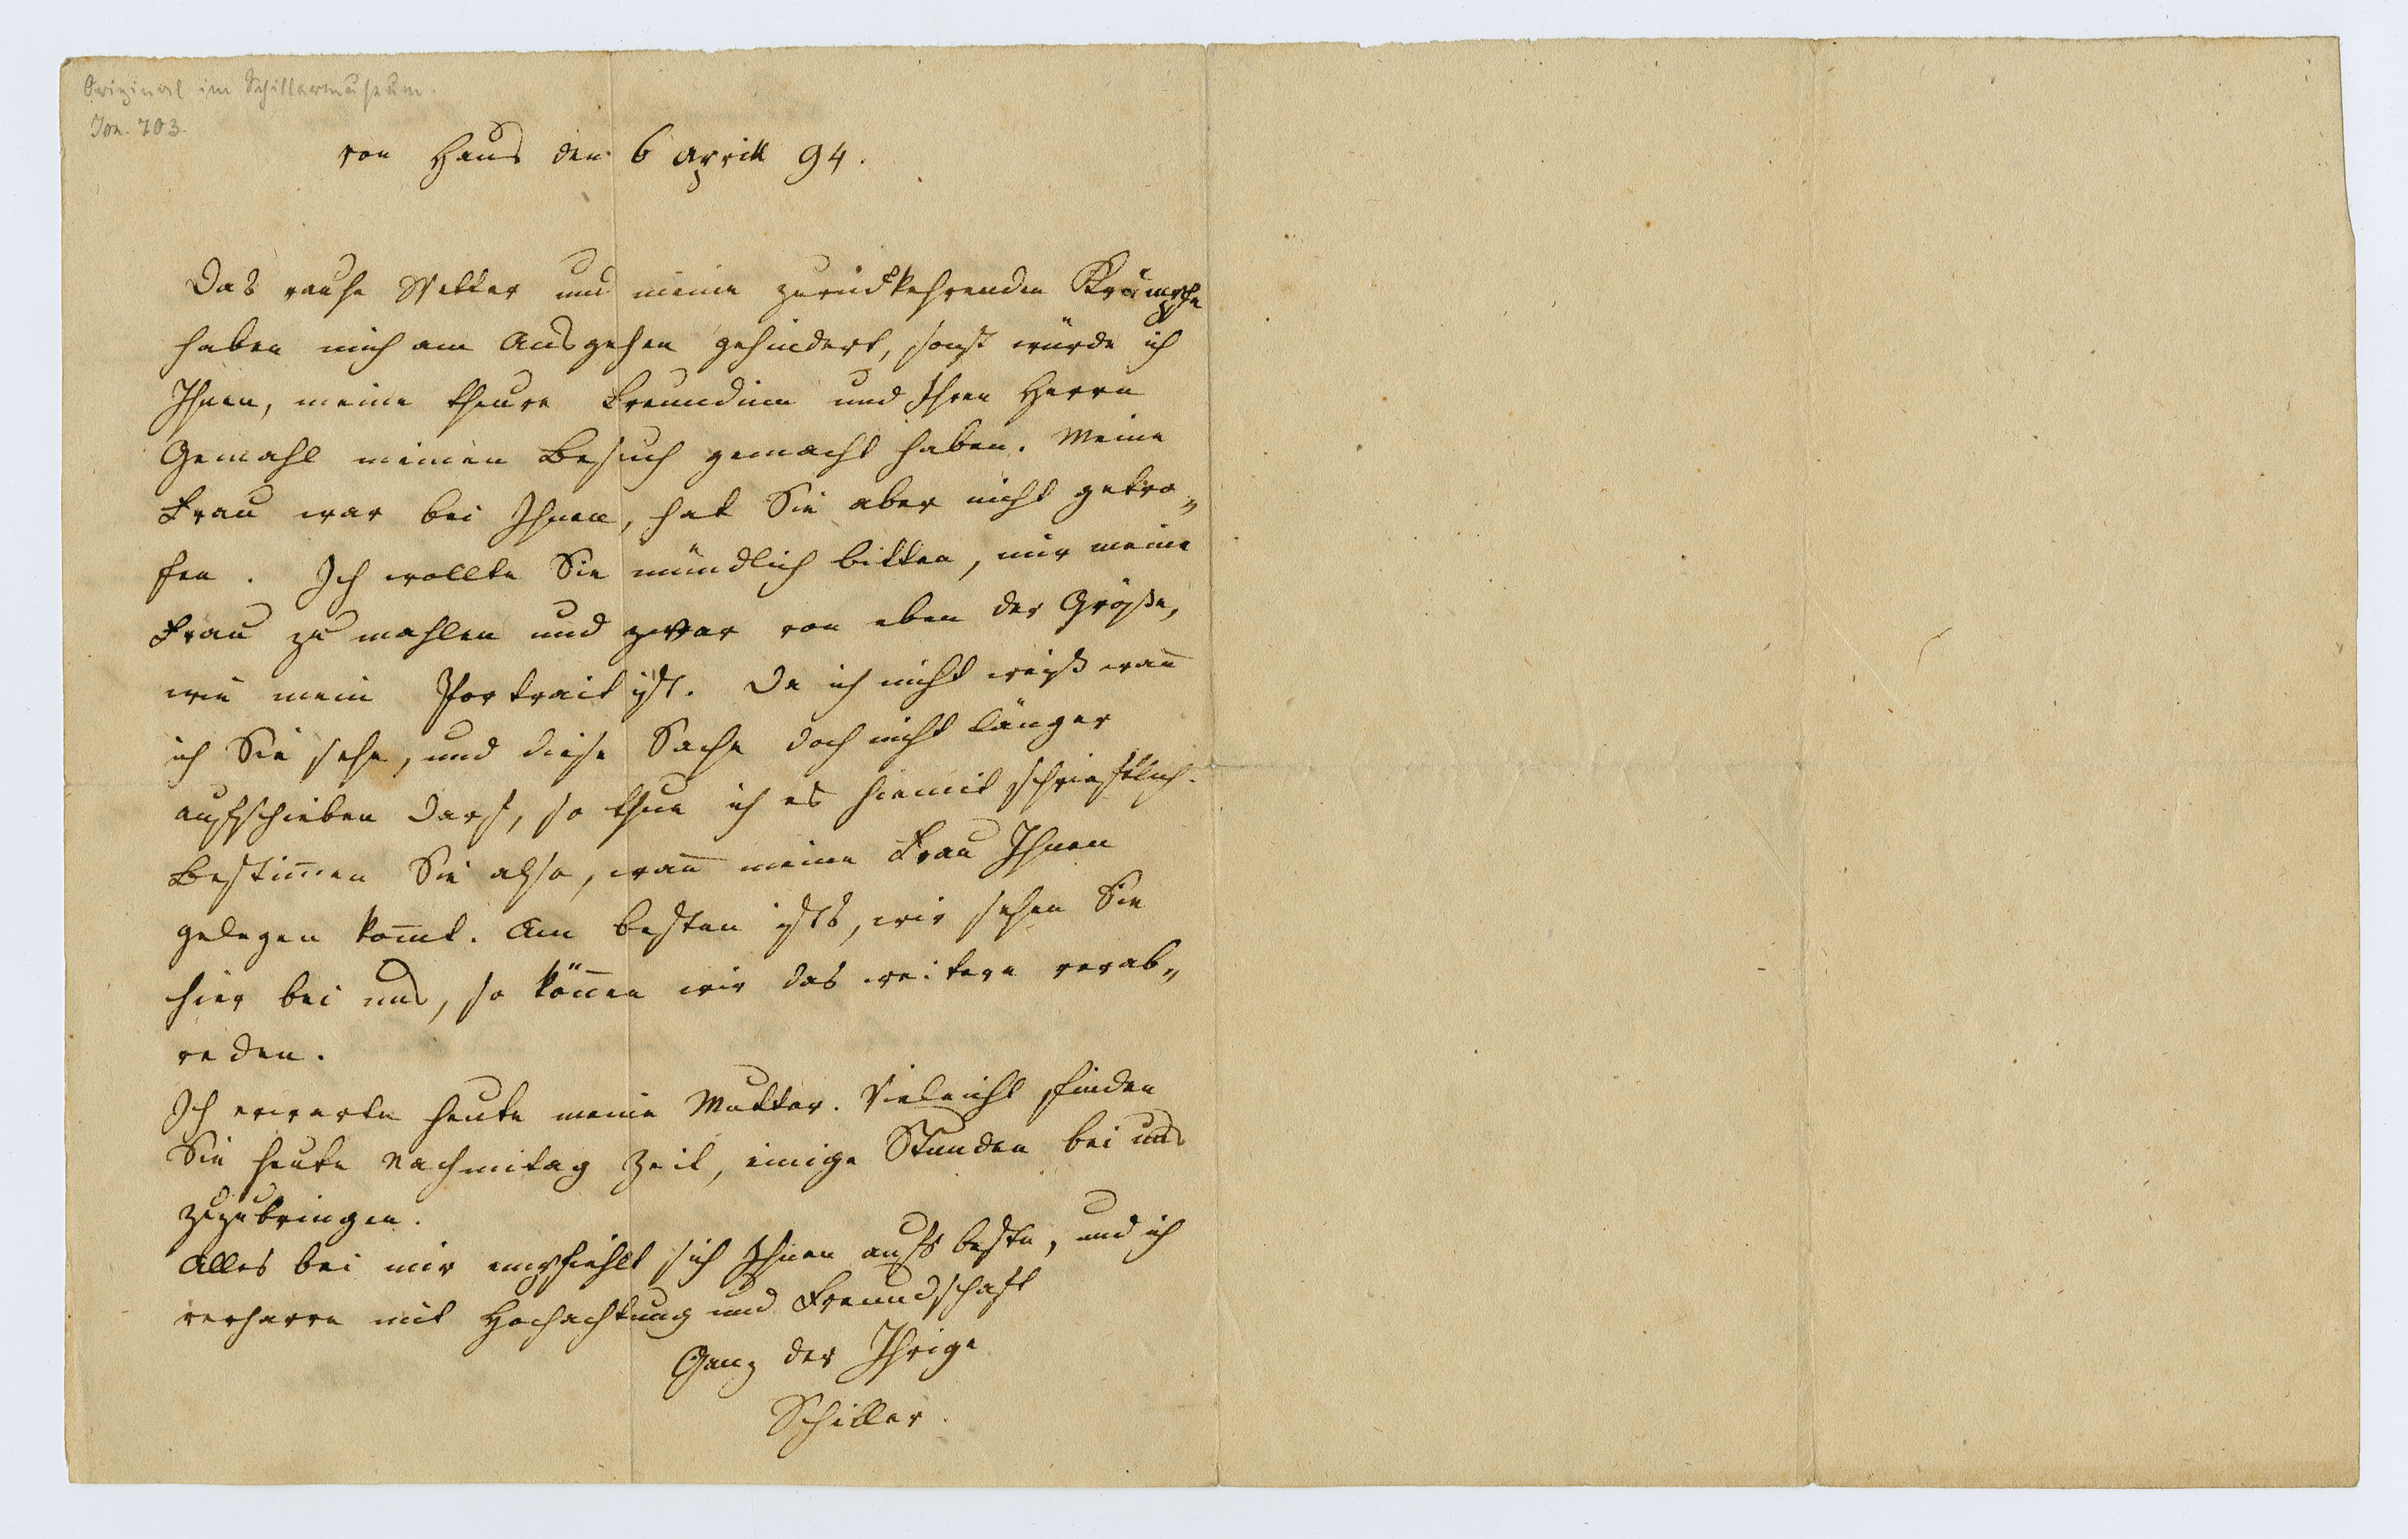 Original im Schillermuseum.
Jon. 703.
von Haus den 6 Aprill 94.
Das rauhe Wetter und meine zurückkehrenden Krämpfe
haben mich am Ausgehen gehindert, sonst würde ich
Ihnen, meine theure Freundinn und Ihren Herrn
Gemahl meinen Besuch gemacht haben. Meine
Frau war bei Ihnen, hat Sie aber nicht getro„
fen. Ich wollte Sie mündlich bitten, mir meine
Frau zu mahlen und zwar von eben der Größe,
wie mein Portrait ist. Da ich nicht weiß wan̄
ich Sie sehe, und diese Sache doch nicht länger
aufschieben darf, so thue ich es hiemit schrieftlich.
Bestim̄en Sie also, wan̄ meine Frau Ihnen
gelegen kom̄t. Am besten ists, wir sehen Sie
hier bei uns, so kön̄en wir das weitere verab„
reden.
Ich erwarte heute meine Mutter. Vieleicht finden
Sie heute Nachmitag Zeit, einige Stunden bei uns
zuzubringen.
Alles bei mir empfiehlt sich Ihnen aufs beste, und ich
verharre mit Hochachtung und Freundschaft
Ganz der Ihrige
Schiller.